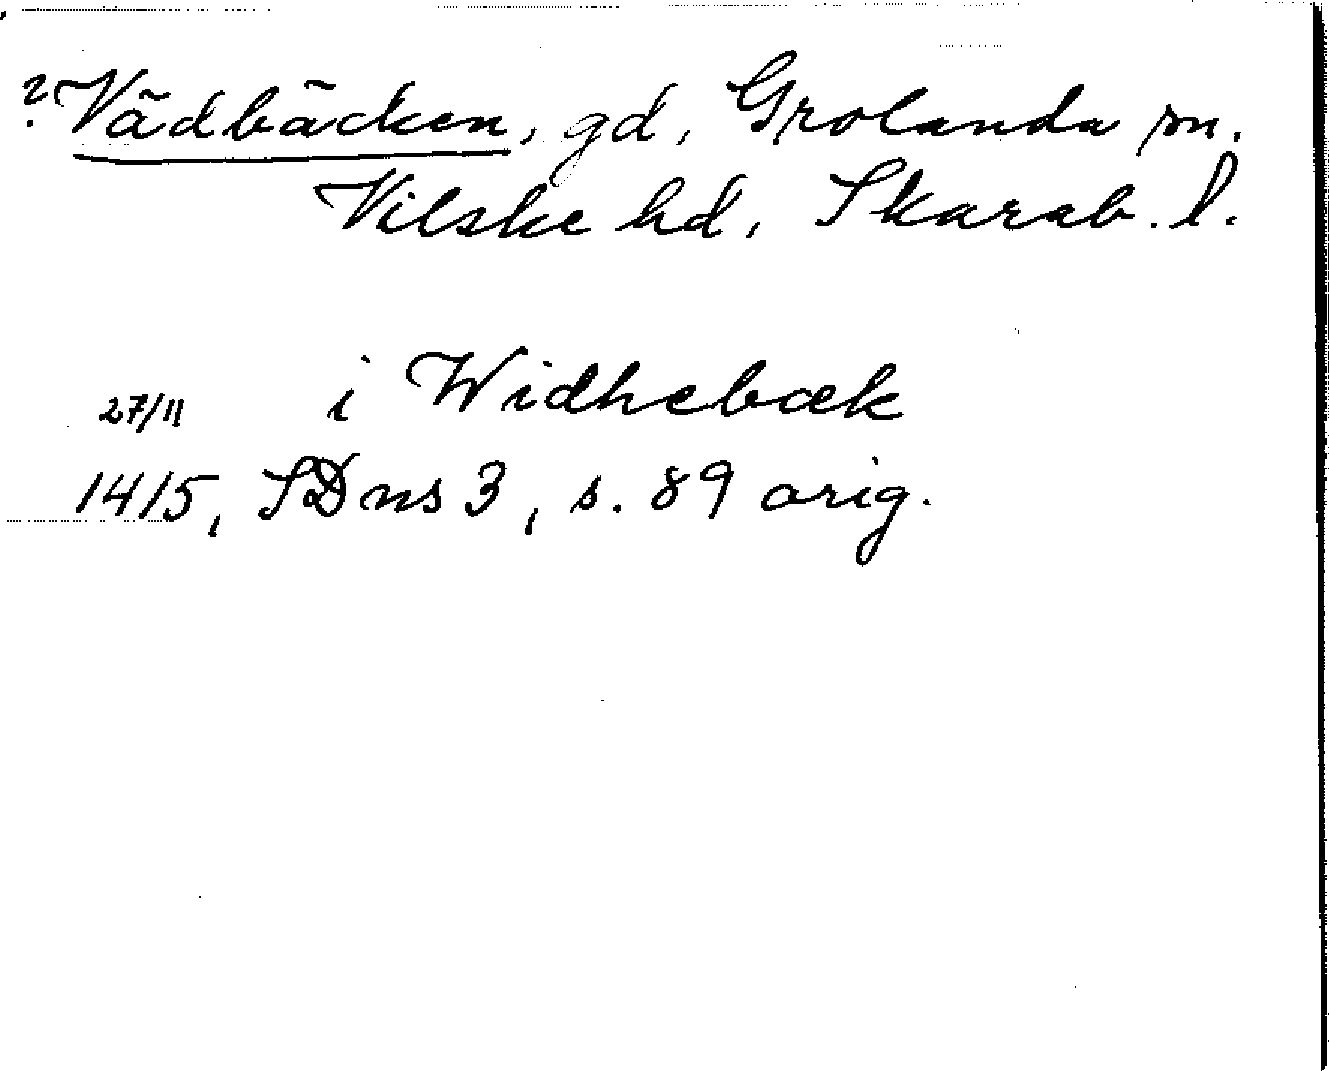 ? Vädbäcken, gd, Grolanda sn.
Vilske hd, Skarab. l.
27/11 i Widhebæk
1415, SDns 3, s. 89 orig.